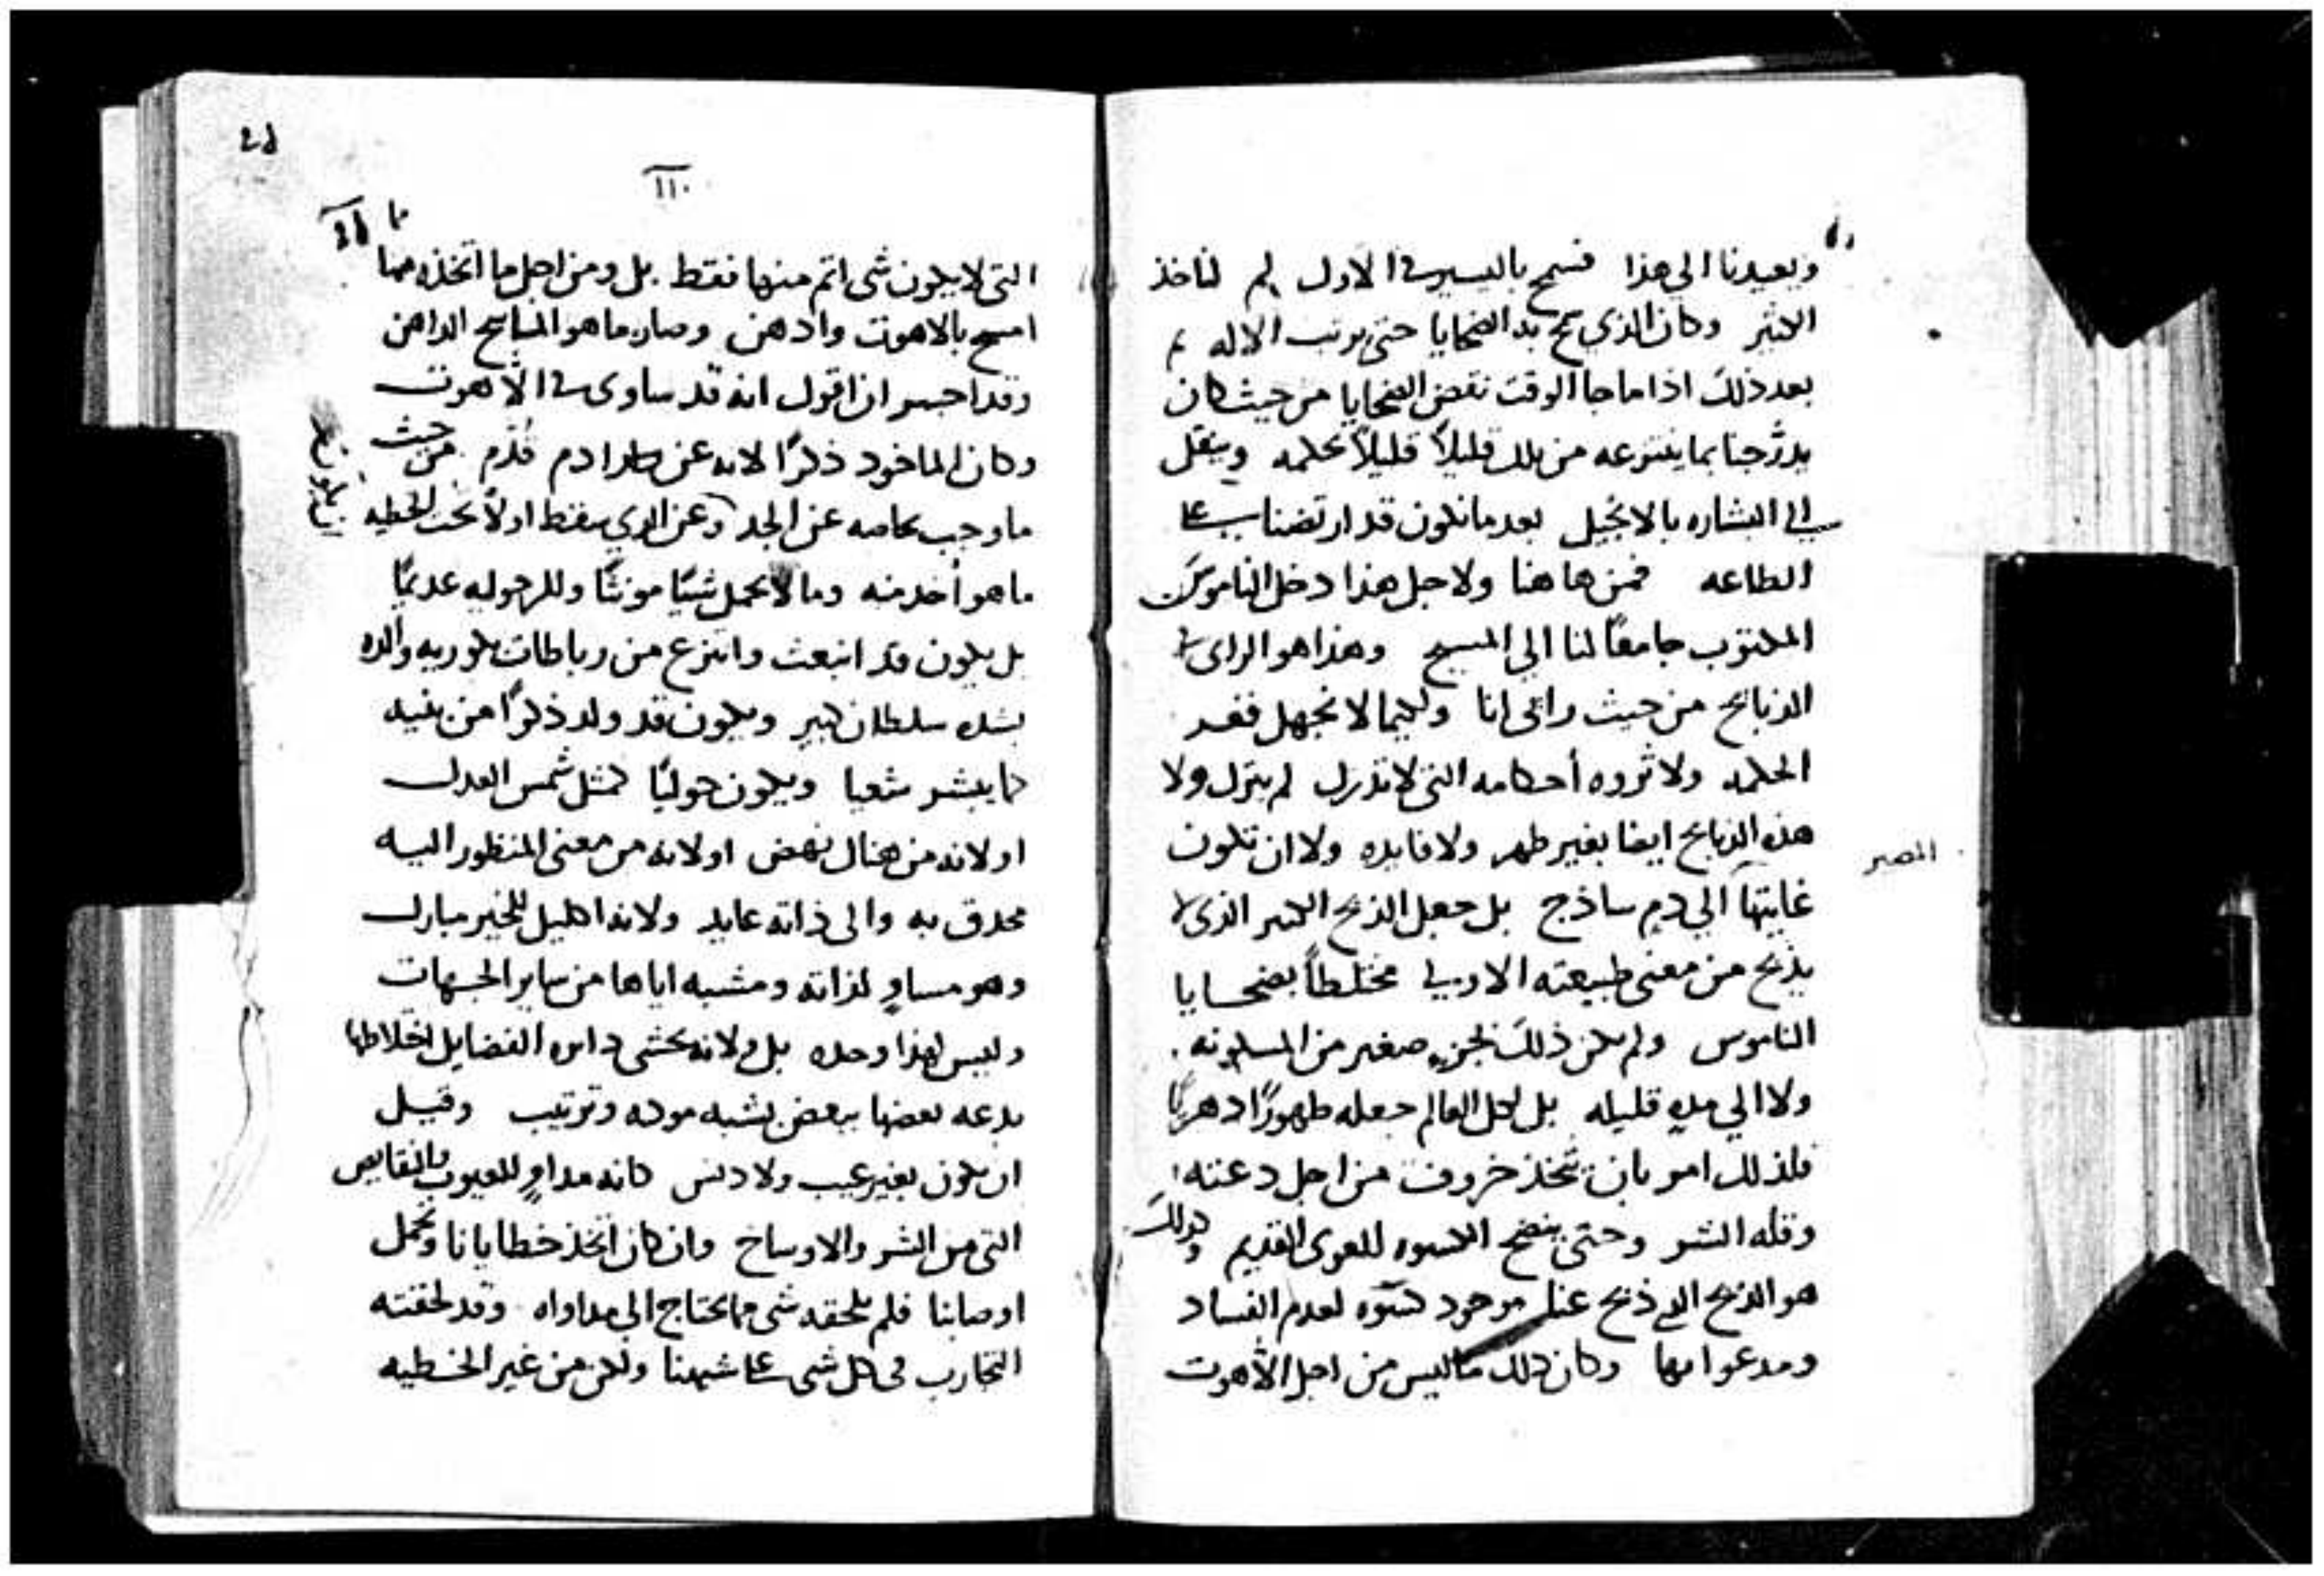 ويعيدنا الي هذا فسمح باليسير في الاول لم لناخذ
الكثير وكان الذي سمح به الضحايا حتى يرتب الاله
بعد ذلك اذا ما جا الوقت نقض الضحايا من حيث كان
يدرّجنا بما ينتزعه من تلك قليلاً قليلاً بحكمه وينقل
الي البشاره بالانجيل بعد ما نكون قد ارتضنا على
الطاعه فمن هاهنا ولاجل هذا دخل الناموس
المكتوب جامعًا لنا الي المسيح وهذا هو الراى في
الذبايح من حيث رائى انا ولكيما لا نجهل فقر
الحكمه ولا ثروه أحكامه التى لا تدرك لم يترك ولا
هذه الذبايح ايضا بغير طهر ولا فايده ولا ان تكون
غايتها الي دم ساذج بل جعل الذبح الكبير الذى لا
يذبح من معنى طبيعته الاولى مختلطاً بضحايا
الناموس ولم يكن ذلك لجزء صغير من المسكونه
ولا الي مده قليله بل لكل العالم جعله طهورًا دهريًا
فلذلك امر بان يتخذ خروف من اجل دعته
وقله الشر وحتى ينضح الكسوه للعرى القديم وكذلك
هو الذبح الذي ذبح عنا موجود كسوه لعدم الفساد
ومدعوا بها وكان ذلك ما ليس من اجل الاهوت
المصر
١١٠
التى لا يكون شى اتم منها فقط بل ومن اجل ما اتخذه مما
امسح بالاهوت وادهن وصار ما هو الماسح الداهن
وقد اجسر ان اقول انه قد ساوى في الاهوت
وكان الماخود ذكرًا لانه عن ادم قُدّم من حيث
ما وجب بخاصه عن الجد وعن الذي سقط اولاً تحت الخطيه
ما هو أخد منه وما لا يحمل شيًا مونثًا وللرجوليه عديمًا
بل يكون قد انبعث وانتزع من رباطات بكوريه والده
بشده سلطان كبير ويكون قد ولد ذكرًا من نبيه
كما يبشر شعيا ويكون حوليًا كمثل شمس العدل
او لانه من هناك نهض او لانه من معنى المنظور اليه
محدق به والى ذاته عايد ولانه اكليل للخير مبارك
وهو مساوٍ لذاته ومشبه اياها من ساير الجهات
وليس لهذا وحده بل ولانه يحشى داس الفضايل اختلاطها
بدعه بعضها ببعض بشبه موده وترتيب وقيل
ان يكون بغير عيب ولا دنس كانه مداوٍ للعيوب والنقايص
التى من الشر والاوساخ وان كان اتخذ خطايانا وتحمل
اوصابنا فلم يلحقه شى مما يحتاج الى مداواه وقد لحقته
التجارب فى كل شى على شبهنا ولكن من غير الخطيه